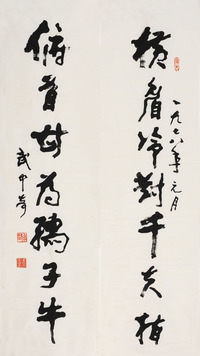 一九七八年元月
横眉冷對千夫指
俯首甘為孺子牛
武中奇